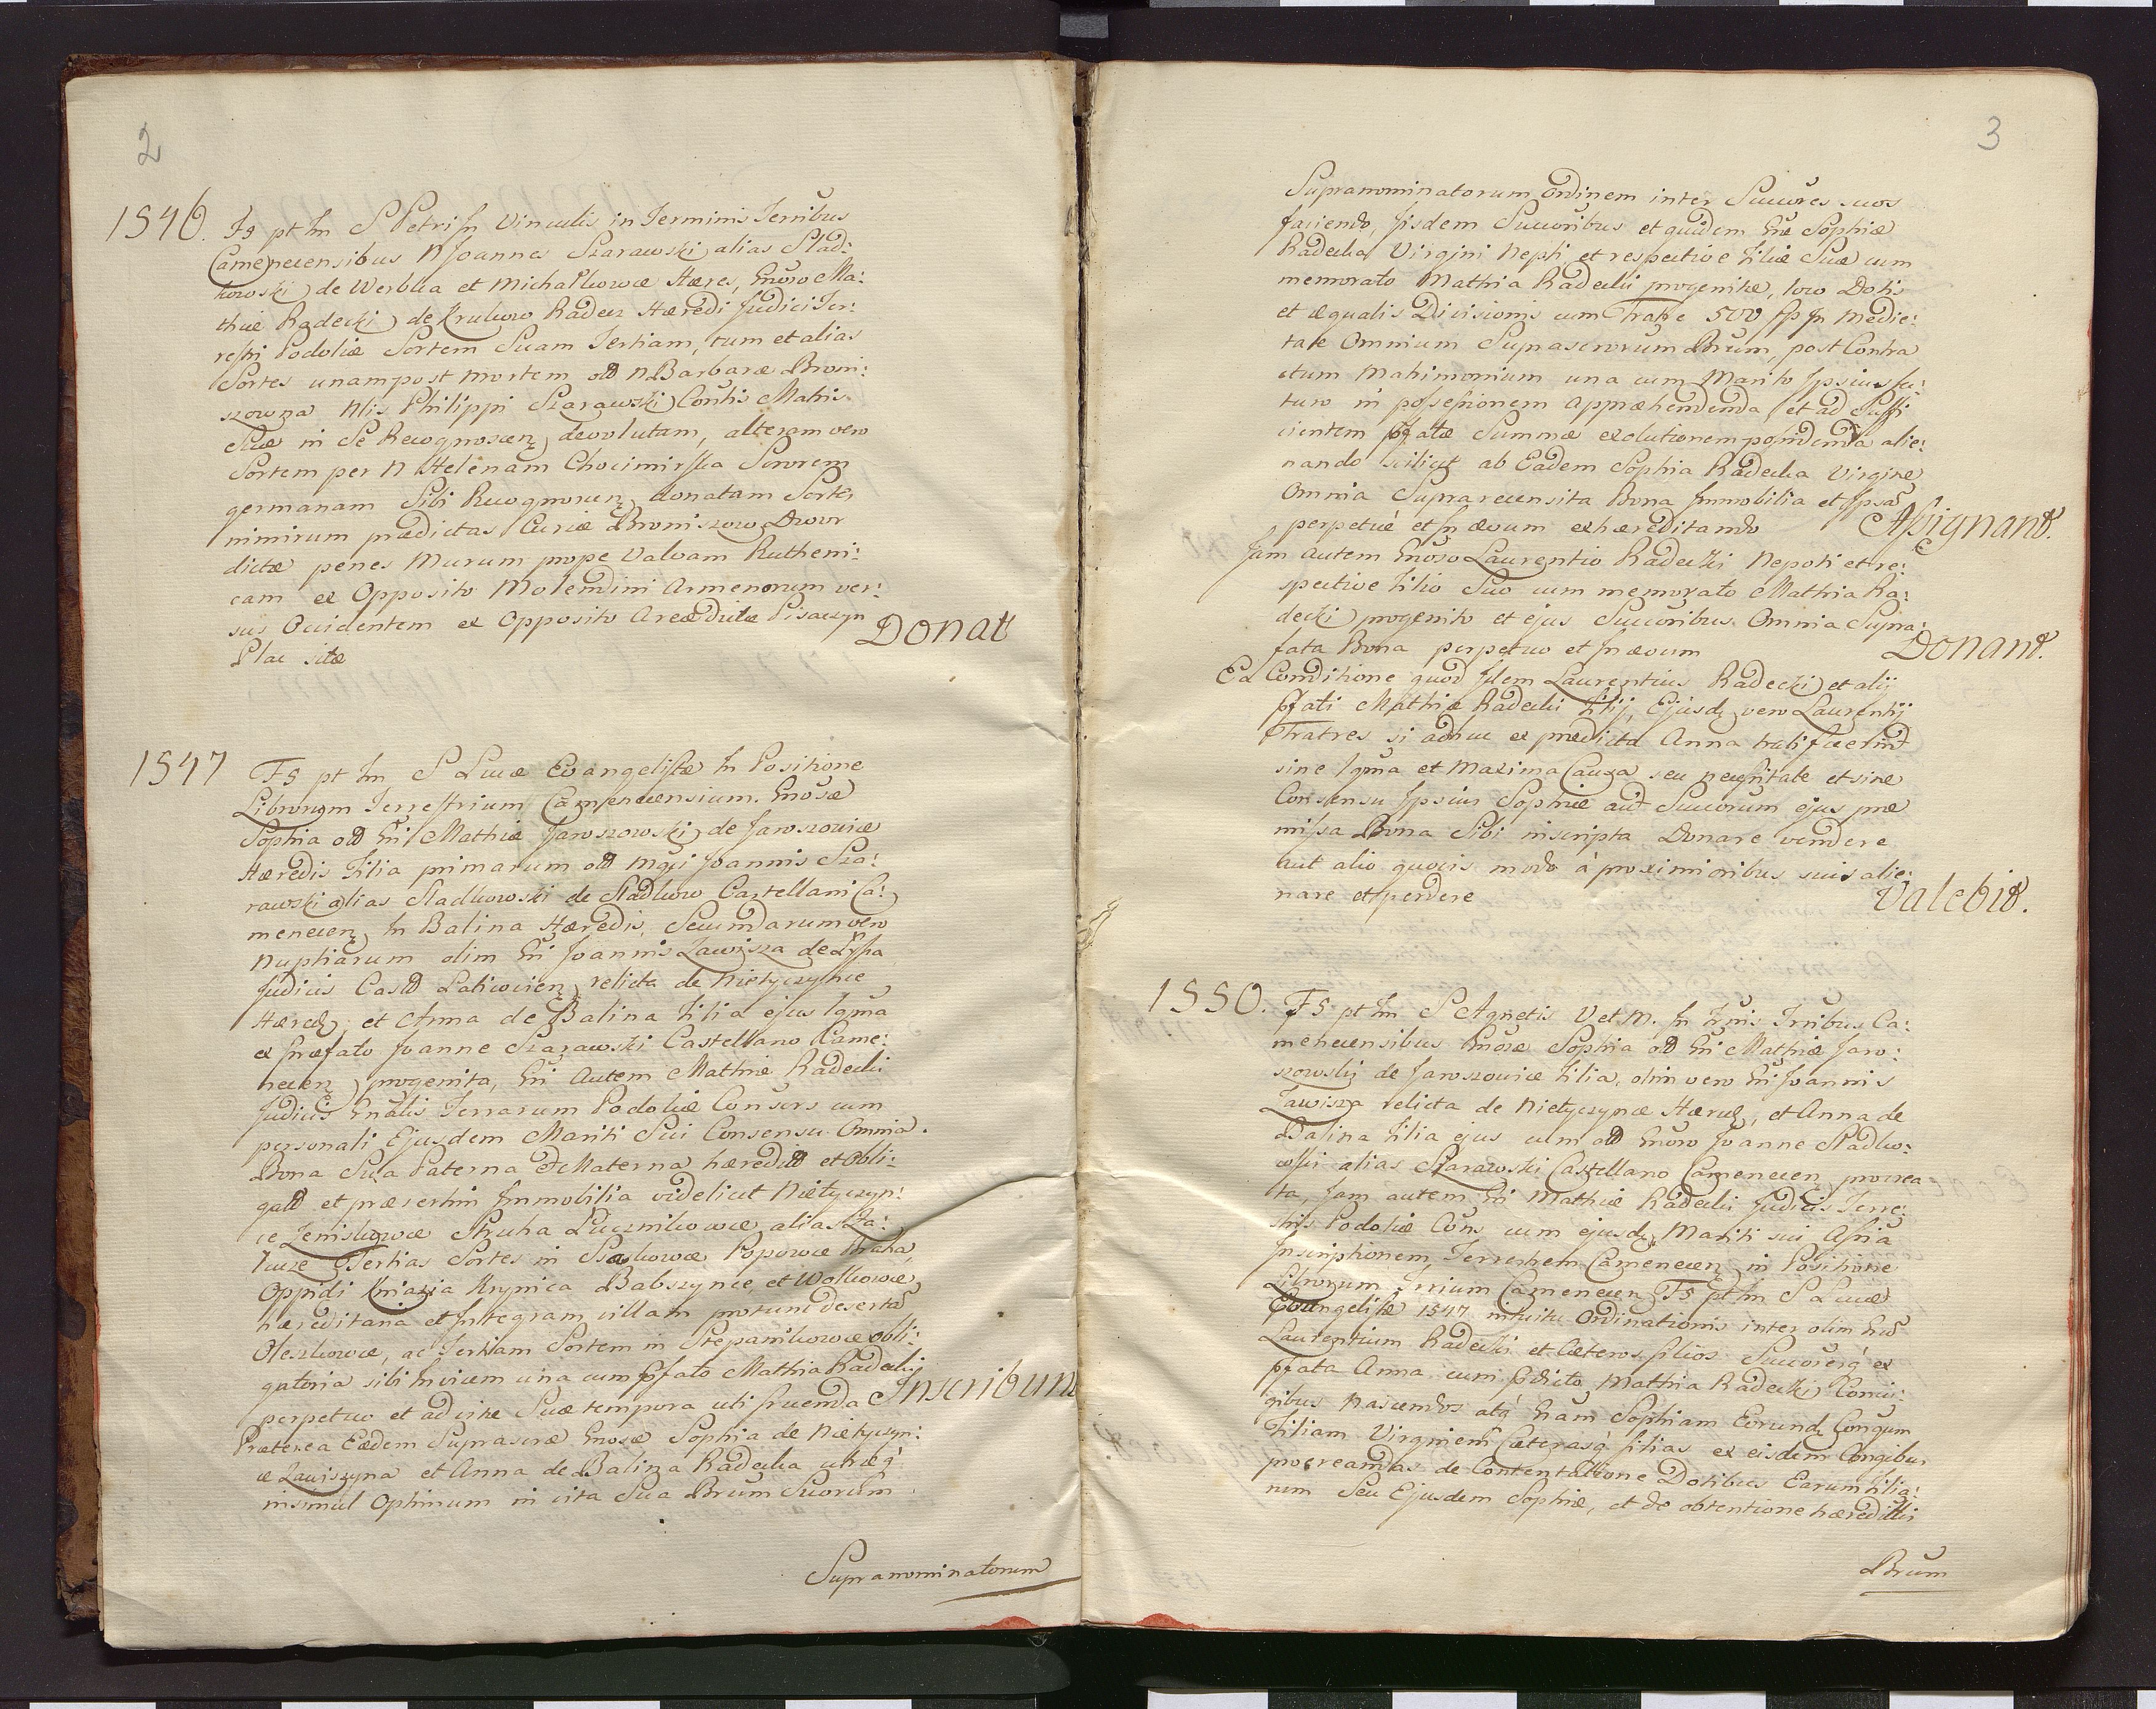 2
1546. Fs pt Fm S Petri Jn Vinculis in Terminis Terribus
Camenecensibus N Joannes Szarawski alias Stad:
kowski de Werbka et Michalkowce Hæres, Gnoso Ma:
thiæ Radecki de Krukow Radecz Hæredi Judici Ter:
restri Podoliæ Sortem Suam Tertiam, tum et alias
Sortes unam post mortem old N Barbaræ Broni:
szowna Nlis Philippi Szarawski Conthis Matris
Suæ in Se Recognoscenz devolutam, alteram vero
Sortem per N Helenam Chocimirska Sororem
germanam Sibi Recognoscenz donatam Sortes
nimirum prædictas Curiæ Broniszow Dwor
dictæ penes Murum prope Valvam Rutheni:
cam ex Opposito Molendini Armenorum ver:
sus Occidentem ex Opposito Areæ dictæ Pisarzyn
Plac sitæ
Donat
1547 Fs pt Fm S Lucæ Evangelistæ Jn Positione
Librorum Terrestrium Camenecensium. Gnosæ
Sophia old Gni Mathiæ Jaroszowski de Jaroszowice
Hæredis Filia primarum old Mgci Joannis Sza:
rawski alias Stadkowski de Stadkow Castellani Ca:
menecenz Jn Balina Hæredis, Secundarum vero
Nuptiarum olim Gni Joannis Zawisza de
Judicis Castd Laticzivienz relicta de Nietyczynce
Hæredz, et Anna de Balina Filia ejus lgma
ex Præfato Joanne Szarawski Castellano Came:
necenz progenita, Gni autem Mathiæ Radecki
Judicis Gnalis Terrarum Podoliæ Consors cum
personali Ejusdem Mariti Sui Consensu Omnia
Bona Sua Paterna et Materna hæreditd et Obli:
gatd et præsertim Jmmobilia videlicet Nietyczyn:
ce Zeniskowce Struha Lucznikowce alias Za:
lucze Tertias Sortes in Popowce
Oppidi Kniazia Krynica Babszynce, et Wolkowce
hæreditaria et Jntegram villam pro tunc deserta
Oleszkowce, ac Tertiam Sortem in Stepankowce obli:
gatoria sibi Jnvicem una cum pfato Mathia Radecki
perpetuo et ad vitæ Suæ tempora uti fruenda Jnscribunt
Præterea Eædem Suprascræ Gnosæ Sophia de Nietyczyn:
ce Zawiszyna et Anna de Balina Radecka utræq
insimul Optimum in vita Sua Brum Suorum
Supranominatorum
3
Supranominatorum Ordinem inter Succores suos
faciendo, Jisdem Succoribus et quidem Gnæ Sophiæ
Radecka Virgini Nepti, et respective Filiæ Suæ cum
memorato Mathia Radecki progenitæ, loco Dotis
et æqualis Divisionis cum Fratre 500 fp Jn Medie:
tate Omnium Suprascrorum Brum, post Contra
ctum Matrimonium una cum Marito Jpsius fu:
turo in possesionem apprehendenda et ad Suffi
cientem pfatæ Summæ exolutionem possidenda alie:
nando scilicet ab Eadem Sophia Radecka Virgine
Omnia Suprarecensita Bona Jmmobilia et Jpsa
perpetue et Jn ævum exhæreditando
Assignant.
Jam autem Gnoso Laurentio Radecki Nepoti et re:
spective Filio Suo cum memorato Mathia Ra:
decki progenito et ejus Succoribus Omnia Supra:
fata Bona perpetuo et Jn ævum
Donant.
Ea Conditione quod Jdem Laurentius Radecki et alij
pfati Mathiæ Radecki Filij, Ejusdz vero Laurentij
Fratres si adhuc ex prædicta Anna nati fuerint
sine lgma et Maxima Causa seu necessitate et sine
Consensu Jpsius Sophiæ aut Succorum ejus præ
missa Bona Sibi inscripta Donare vendere
aut alio quovis modo à proximioribus suis alie:
nare et perdere
Valebit.
1550. Fs pt Fm S Agnetis V et M. Jn Trnis Trribus Ca:
menecensibus Gnosæ Sophia old Gni Mathiæ Jaro:
szowski de Jaroszowice Filia, olim vero Gni Joannis
Zawisza relicta de Nietyczynce Hæredz, et Anna de
Balina Filia ejus cum old Gnoso Joanne Stadko:
wski alias Szarawski Castellano Camenecenz procrea
ta, Jam autem Gni Mathiæ Radecki Judicis Terre:
stris Podoliæ Cons cum ejusdz Mariti sui Assña
Jnscriptionem Terrestrem Camenecenz in Positione
Librorum Trrium Camenecenz Fs pt Fm S Lucæ
Evangelistæ 1547 intuitu Ordinationis inter olim Gno
Laurentium Radecki et Cæteros filios Succoresq ex
pfata Anna cum pdicto Mathia Radecki Conju:
gibus nascendos atq Gnam Sophiam Eorundz Congum
Filiam Virginem Cæterasq filias ex eisdem Congibus
procreandas de Contentatione Dotibus Earum Filia:
rum Seu Ejusdem Sophiæ, et de obtentione hæreditlis
Brum